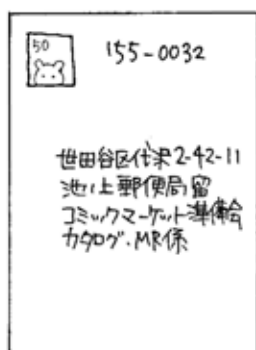 50
155-0032
世田谷区代沢2-42-11
池ノ上郵便局留
コミックマーケット準備会
カタログ・MR係